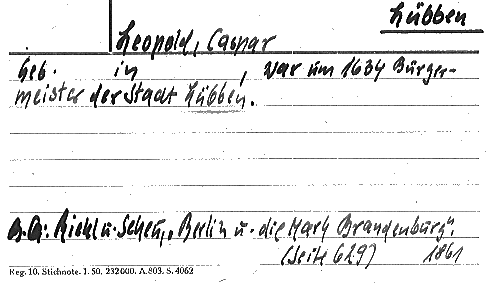 Lübben
Leopold, Caspar
Geb. in , war um 1634 Bürger-
meister der Stadt Lübben.
Riehl u. Scheu, „Berlin u. die Mark Brandenburg“.
(Seite 629) 1861
Reg. 10. Stichnote. I. 50. 232000. A. 803. S. 4062